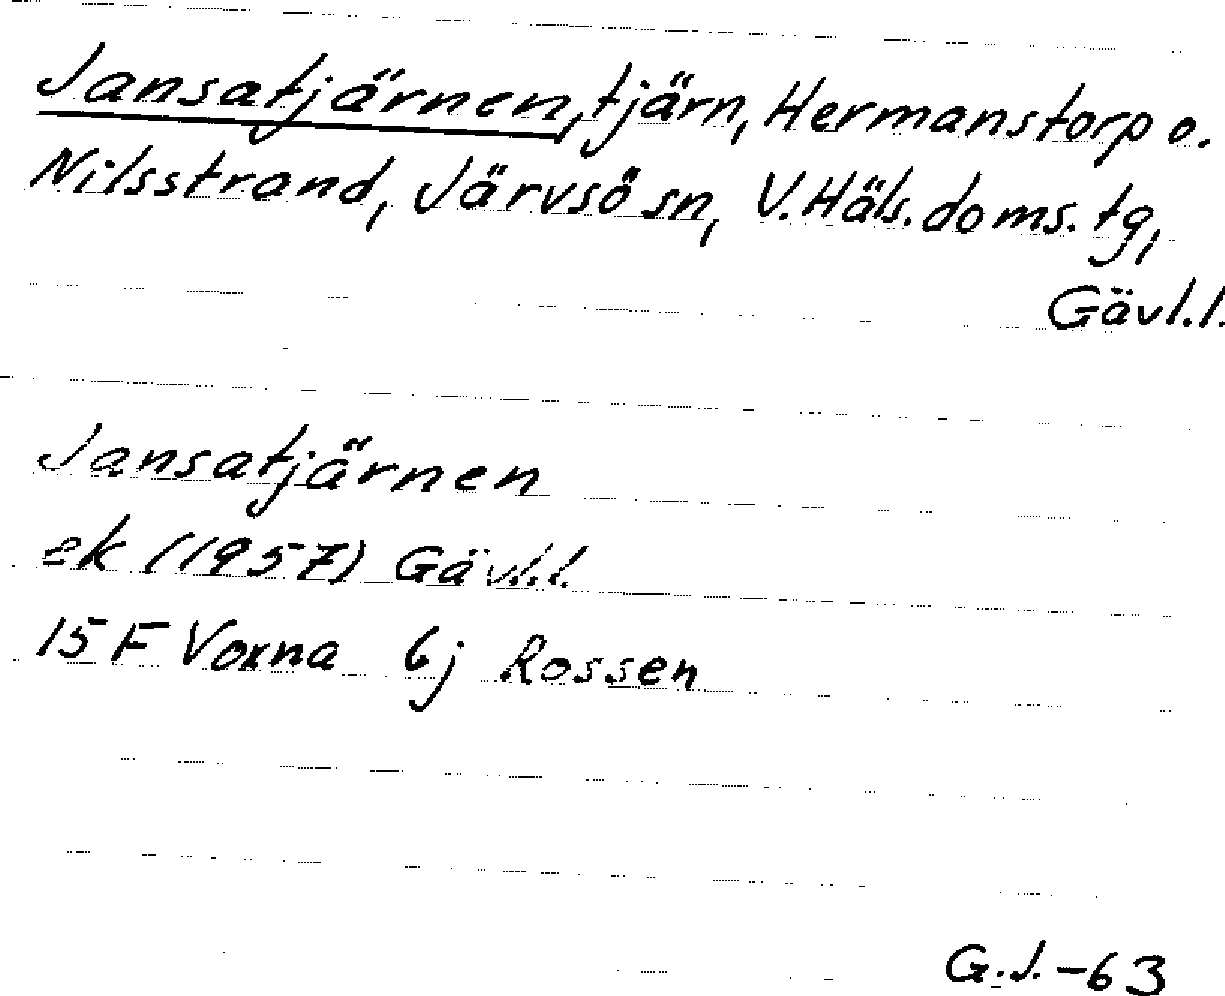 Jansatjärnen, tjärn, Hermanstorp o.
Nilsstrand, Järvsö sn, V. Häls. doms. tg,
Gävl.l.
Jansatjärnen
ek (1957) Gävl.l.
15 F Voxna 6j Rossen
G.J.-63